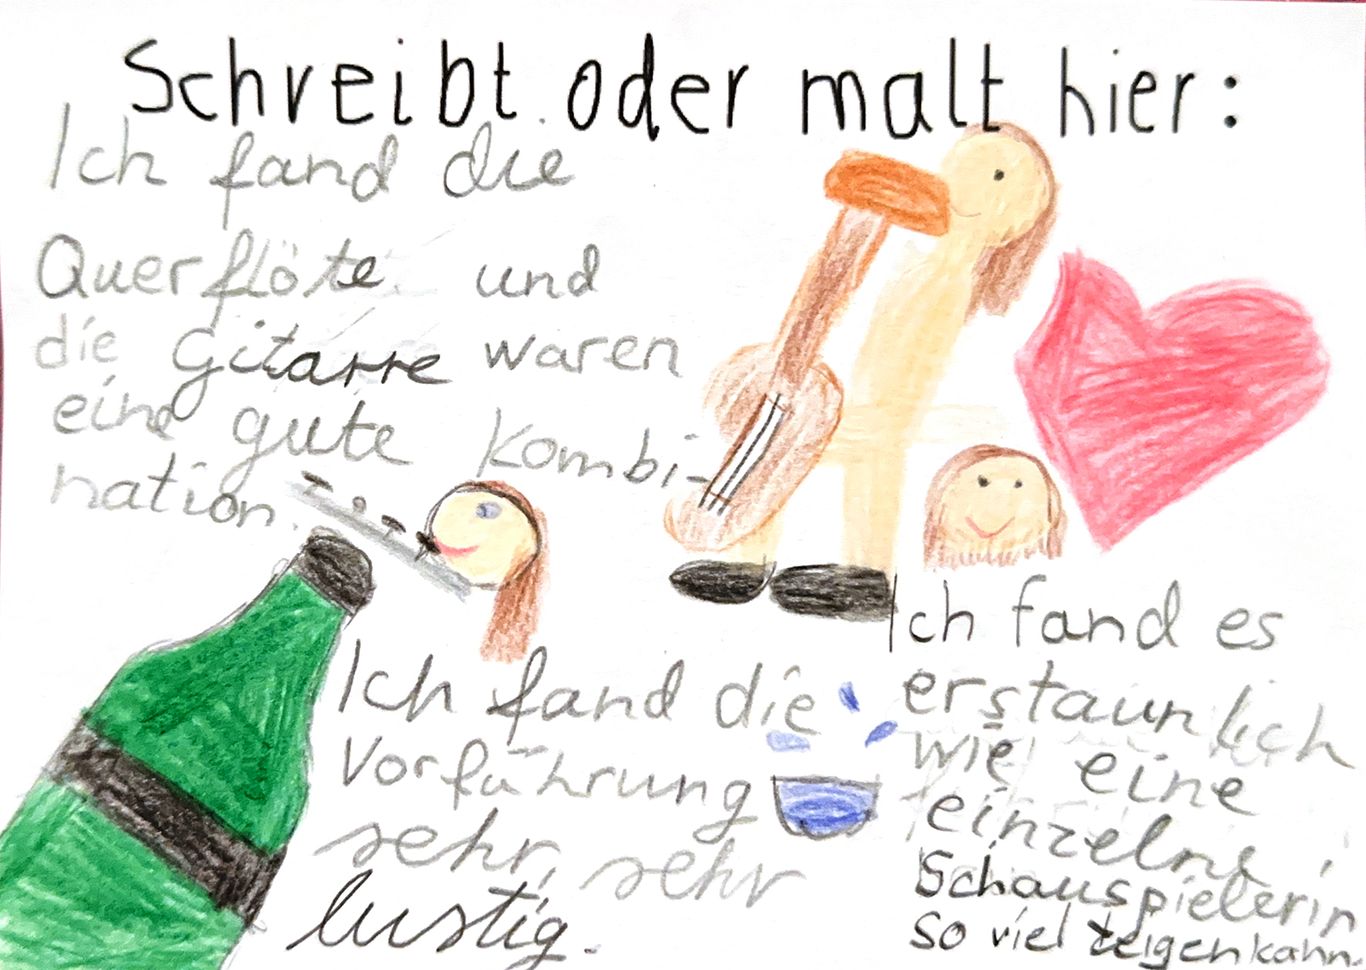 Schreibt oder malt hier:
Ich fand die
Querflöte und
die Gitarre waren
eine gute Kombi-
nation.
Ich fand die
Vorführung
sehr, sehr
lustig.
Ich fand es
erstaunlich
wie eine
einzelne
Schauspielerin
so viel zeigen kahn.